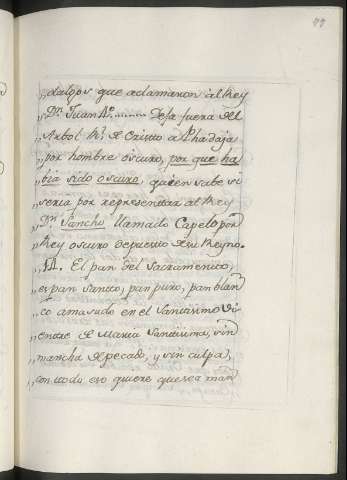 77
„dalgos que aclamaron al Rey
„Dⁿ. Juan 4º. ........ Dessa fuera del
„Arbol de Cristo
„por hombre oscuro, por que ha
„bia sido oscuro, quien sabe si
„seria por representar al Rey
„Dⁿ. Sancho llamado Capelo por
„Rey oscuro depuesto de su Reyno.
„14. El pan del Sacramento,
„es pan Santto, pan puro, pan blan
„co amasado en el Santisimo Vi-
„entre de Maria Santisima, sin
„mancha de pecado, y sin culpa,
„con todo eso quiere que sea man